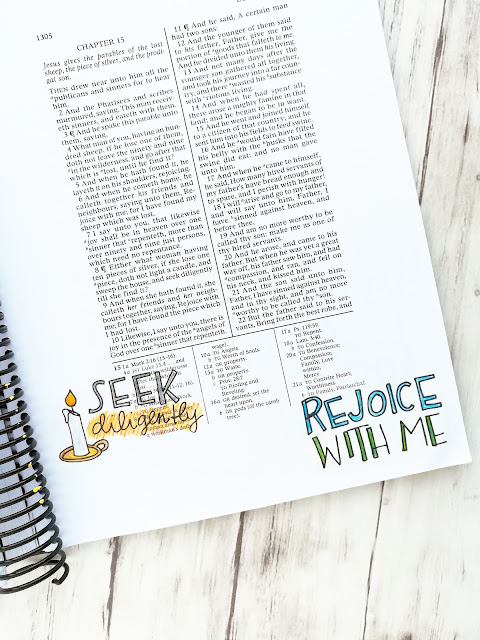 1305
CHAPTER 15
Jesus gives the parables of the lost
sheep, the piece of silver, and the prodi-
gal son.
THEN drew near unto him all the
publicans and sinners for to hear
him.
2 And the Pharisees and scribes
murmured, saying, This man receiv-
eth sinners, and eateth with them.
3 ¶ And he spake this parable unto
them, saying,
4 What man of you, having an hun-
dred sheep, if he lose one of them,
doth not leave the ninety and nine
in the wilderness, and go after that
which is lost, until he find it?
5 And when he hath found it, he
layeth it on his shoulders, rejoicing.
6 And when he cometh home, he
calleth together his friends and
neighbours, saying unto them, Re-
joice with me; for I have found my
sheep which was lost.
7 I say unto you, that likewise
joy shall be in heaven over one
sinner that repenteth, more than
over ninety and nine just persons,
which need no repentance.
8 ¶ Either what woman having
ten pieces of silver, if she lose one
piece, doth not light a candle, and
sweep the house, and seek diligently
till she find it?
9 And when she hath found it, she
calleth her friends and her neigh-
bours together, saying, Rejoice with
me; for I have found the piece which
I had lost.
10 Likewise, I say unto you, there is
joy in the presence of the angels of
God over one sinner that repenteth.
11 ¶ And he said, A certain man
had two sons:
12 And the younger of them said
to his father, Father, give me the
portion of goods that falleth to me.
And he divided unto them his living.
13 And not many days after the
younger son gathered all together,
and took his journey into a far coun-
try, and there wasted his substance
with riotous living.
14 And when he had spent all,
there arose a mighty famine in that
land; and he began to be in want.
15 And he went and joined himself
to a citizen of that country; and he
sent him into his fields to feed swine.
16 And he would fain have filled
his belly with the husks that the
swine did eat: and no man gave
unto him.
17 And when he came to himself,
he said, How many hired servants of
my father's have bread enough and
to spare, and I perish with hunger!
18 I will arise and go to my father,
and will say unto him, Father, I
have sinned against heaven, and
before thee,
19 And am no more worthy to be
called thy son: make me as one of
thy hired servants.
20 And he arose, and came to his
father. But when he was yet a great
way off, his father saw him, and had
compassion, and ran, and fell on
his neck, and kissed him.
21 And the son said unto him,
Father, I have sinned against heaven,
and in thy sight, and am no more
worthy to be called thy son.
22 But the father said to his ser-
vants, Bring forth the best robe, and
15 1a Mark 2:16 (15–16).
wager.
10a TG Angels.
b TG Worth of Souls.
12a on property
13a TG Waste.
b on property
c Prov. 28:7.
TG Rioting and
Reveling.
16a on desired, set the
heart upon.
b on pods (of the carob
tree).
17a Ps. 119:59.
TG Repent.
18a Lam. 3:40.
b TG Confession.
20a TG Benevolence;
Compassion;
Family, Love
within;
Mercy.
21a TG Contrite Heart;
Worthiness.
b TG Family, Patriarchal.
SEEK
diligently
REJOICE
WITH ME